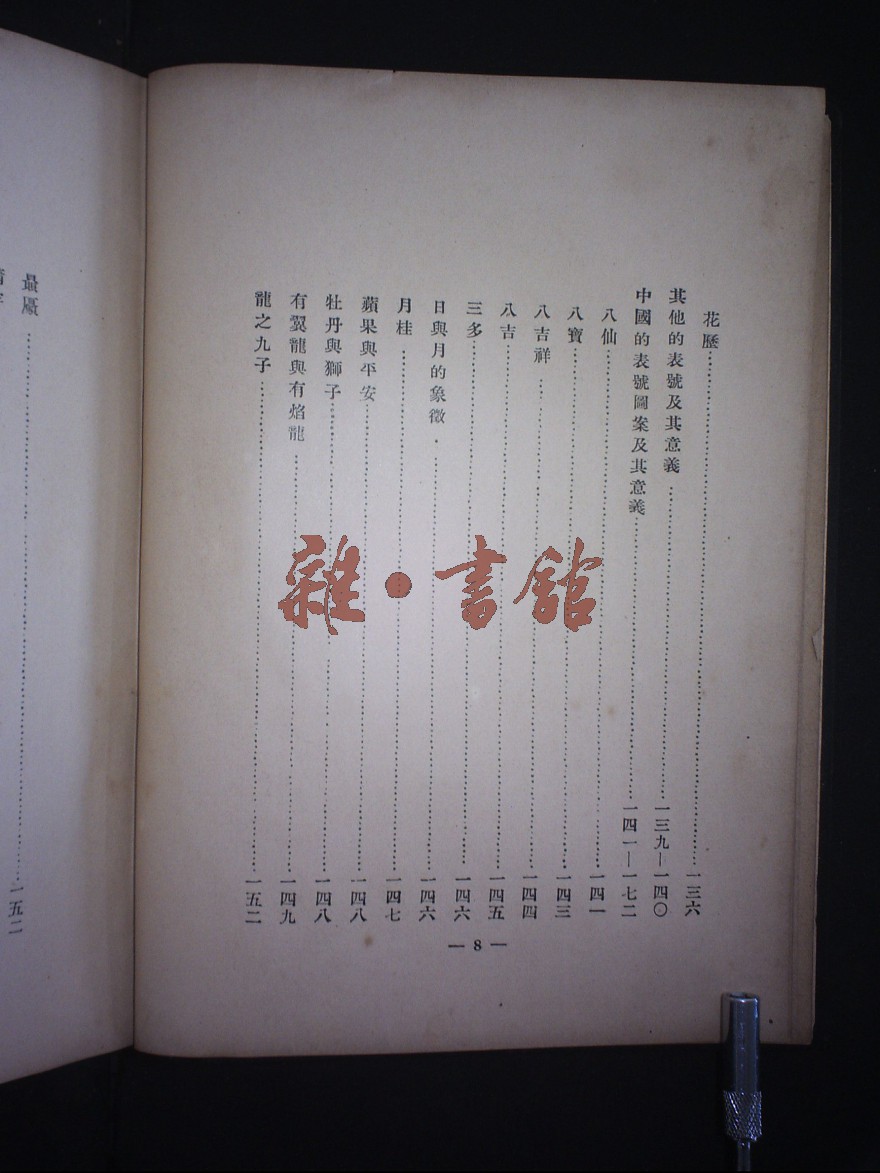 花歷 一三六
其他的表號及其意義 一三九—一四〇
中國的表號圖案及其意義 一四一—一七二
八仙 一四一
八寶 一四三
八吉祥 一四四
八吉 一四五
三多 一四六
日與月的象徵 一四六
月桂 一四七
蘋果與平安 一四八
牡丹與獅子 一四八
有翼龍與有焰龍 一四九
龍之九子 一五二
— 8 —
一五二
雜·書館